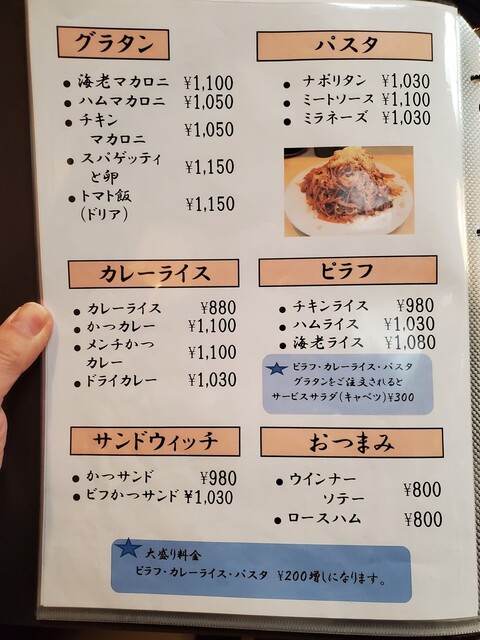 グラタン
海老マカロニ ¥1,100
ハムマカロニ ¥1,050
チキン
マカロニ ¥1,050
スパゲッティ
と卵 ¥1,150
トマト飯
(ドリア) ¥1,150
パスタ
ナポリタン ¥1,030
ミートソース ¥1,100
ミラネーズ ¥1,030
カレーライス
カレーライス ¥880
かつカレー ¥1,100
メンチかつ
カレー ¥1,100
ドライカレー ¥1,030
ピラフ
チキンライス ¥980
ハムライス ¥1,030
海老ライス ¥1,080
ピラフ・カレーライス・パスタ
グラタンをご注文されると
サービスサラダ(キャベツ)¥300
サンドウィッチ
かつサンド ¥980
ビフかつサンド ¥1,030
おつまみ
ウインナー
ソテー ¥800
ロースハム ¥800
大盛り料金
ピラフ・カレーライス・パスタ ¥200増しになります。